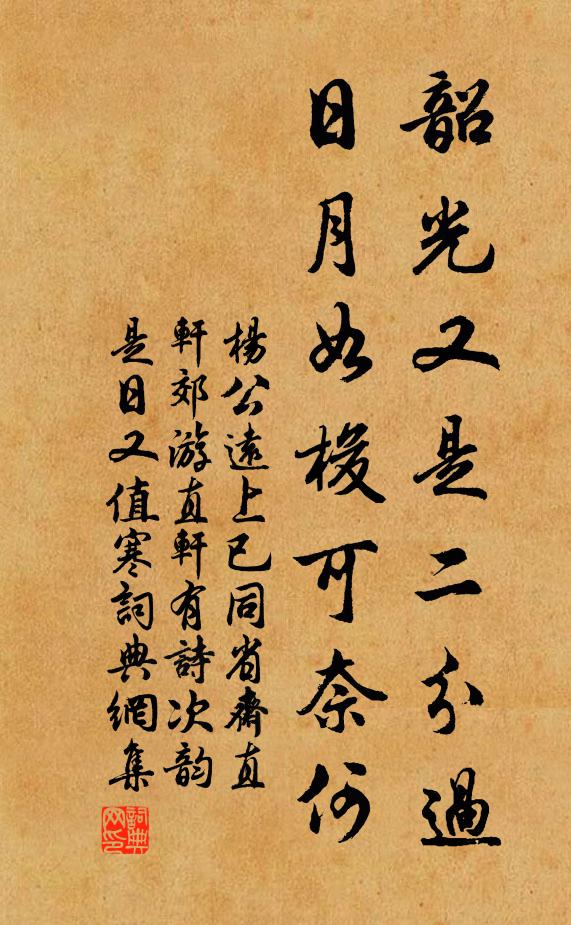 韶光又是二分過
日月如梭可奈何
楊公遠上已同省齋直
軒郊游直軒有詩次韵
是日又值寒詞典網集
詞典网印